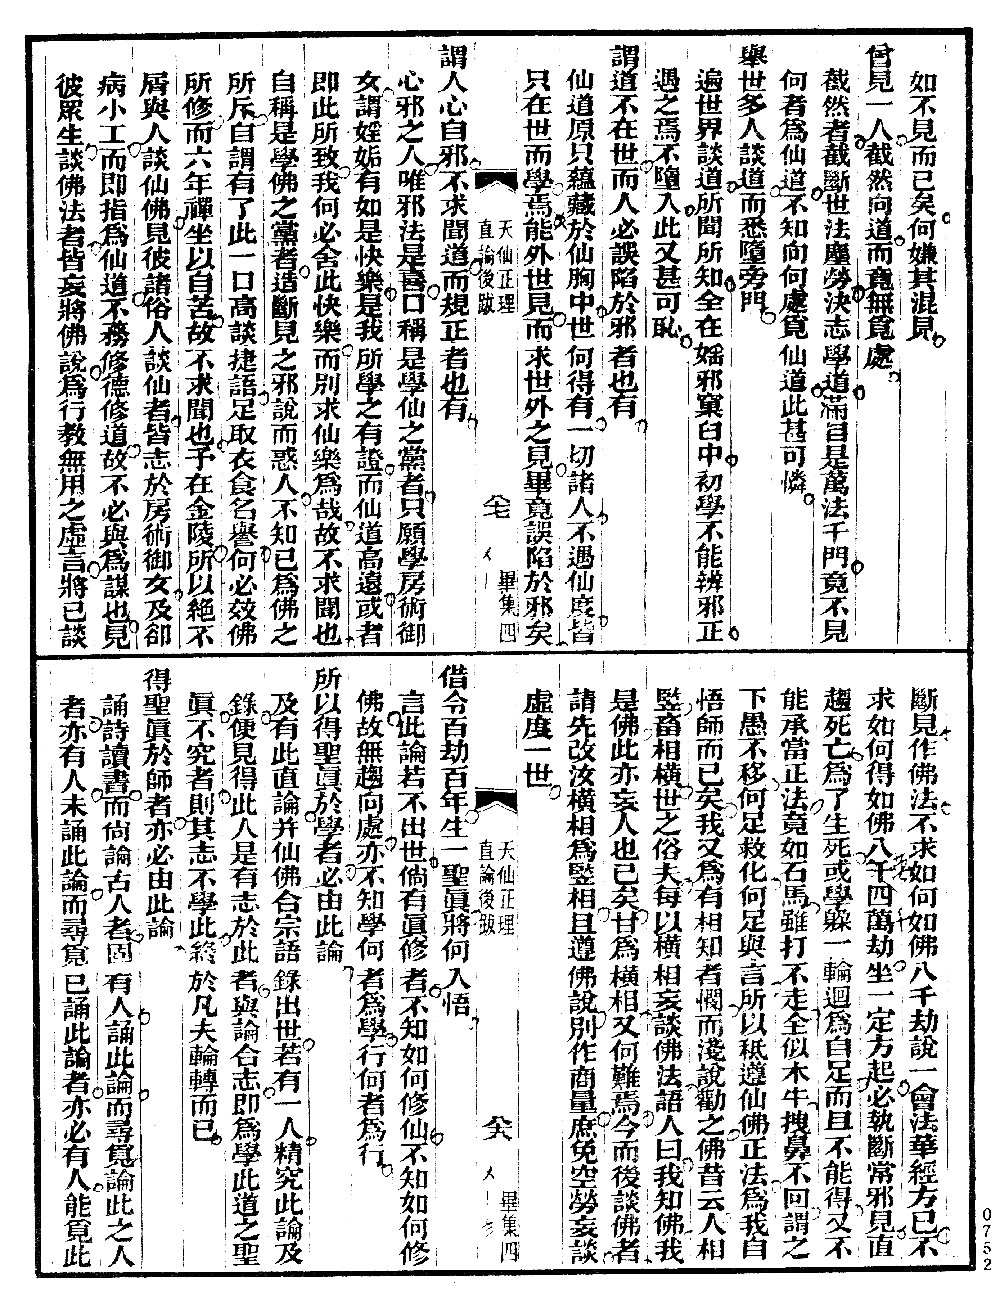 如不見而已矣何嫌其混見
曾見一人截然向道而竟無覓處
截然者截斷世法塵勞決志學道滿目是萬法千門竟不見
何者爲仙道不知向何處覓仙道此甚可憐
舉世多人談道而悉墮旁門
遍世界談道所聞所知全在婬邪窠臼中初學不能辨邪正
遇之焉不墮入此又甚可恥
謂道不在世而人必誤陷於邪者也有
仙道原只蘊藏於仙胸中世何得有一切諸人不遇仙度皆
只在世而學焉能外世見而求世外之見畢竟誤陷於邪矣
天仙正理
直論後跋
六七
畢集四
謂人心自邪不求聞道而規正者也有
心邪之人唯邪法是喜口稱是學仙之黨者只願學房術御
女謂婬姤有如是快樂是我所學之有證而仙道高遠或者
即此所致我何必舍此快樂而別求仙樂爲哉故不求聞也
自稱是學佛之黨者造斷見之邪說而惑人不知已爲佛之
所斥自謂有了此一口高談捷語足取衣食名譽何必效佛
所修而六年禪坐以自苦故不求聞也予在金陵所以絕不
屑與人談仙佛見彼諸俗人談仙者皆志於房術御女及卻
病小工而即指爲仙道不務修德修道故不必與爲謀也見
彼眾生談佛法者皆妄將佛說爲行教無用之虛言將已談
斷見作佛法不求如何如佛八千劫說一會法華經方已不
求如何得如佛八千四萬劫坐一定方起必執斷常邪見直
趨死亡爲了生死或學躲一輪迴爲自足而且不能得又不
能承當正法竟如石馬雖打不走全似木牛拽鼻不回謂之
下愚不移何足救化何足與言所以祇遵仙佛正法爲我自
悟師而已矣我又爲有相知者憫而淺說勸之佛昔云人相
竪畜相橫世之俗夫每以橫相妄談佛法語人曰我知佛我
是佛此亦妄人也已矣甘爲橫相又何難焉今而後談佛者
請先改汝橫相爲竪相且遵佛說別作商量庶免空勞妄談
虛度一世
天仙正理
直論後跋
六八
畢集四
借令百劫百年生一聖眞將何入悟
言此論若不出世倘有眞修者不知如何修仙不知如何修
佛故無趨向處亦不知學何者爲學行何者爲行
所以得聖眞於學者必由此論
及有此直論并仙佛合宗語錄出世若有一人精究此論及
錄便見得此人是有志於此者與論合志即爲學此道之聖
眞不究者則其志不學此終於凡夫輪轉而已
得聖眞於師者亦必由此論
誦詩讀書而尙論古人者固有人誦此論而尋覓論此之人
者亦有人未誦此論而尋覓已誦此論者亦必有人能覓此
0752